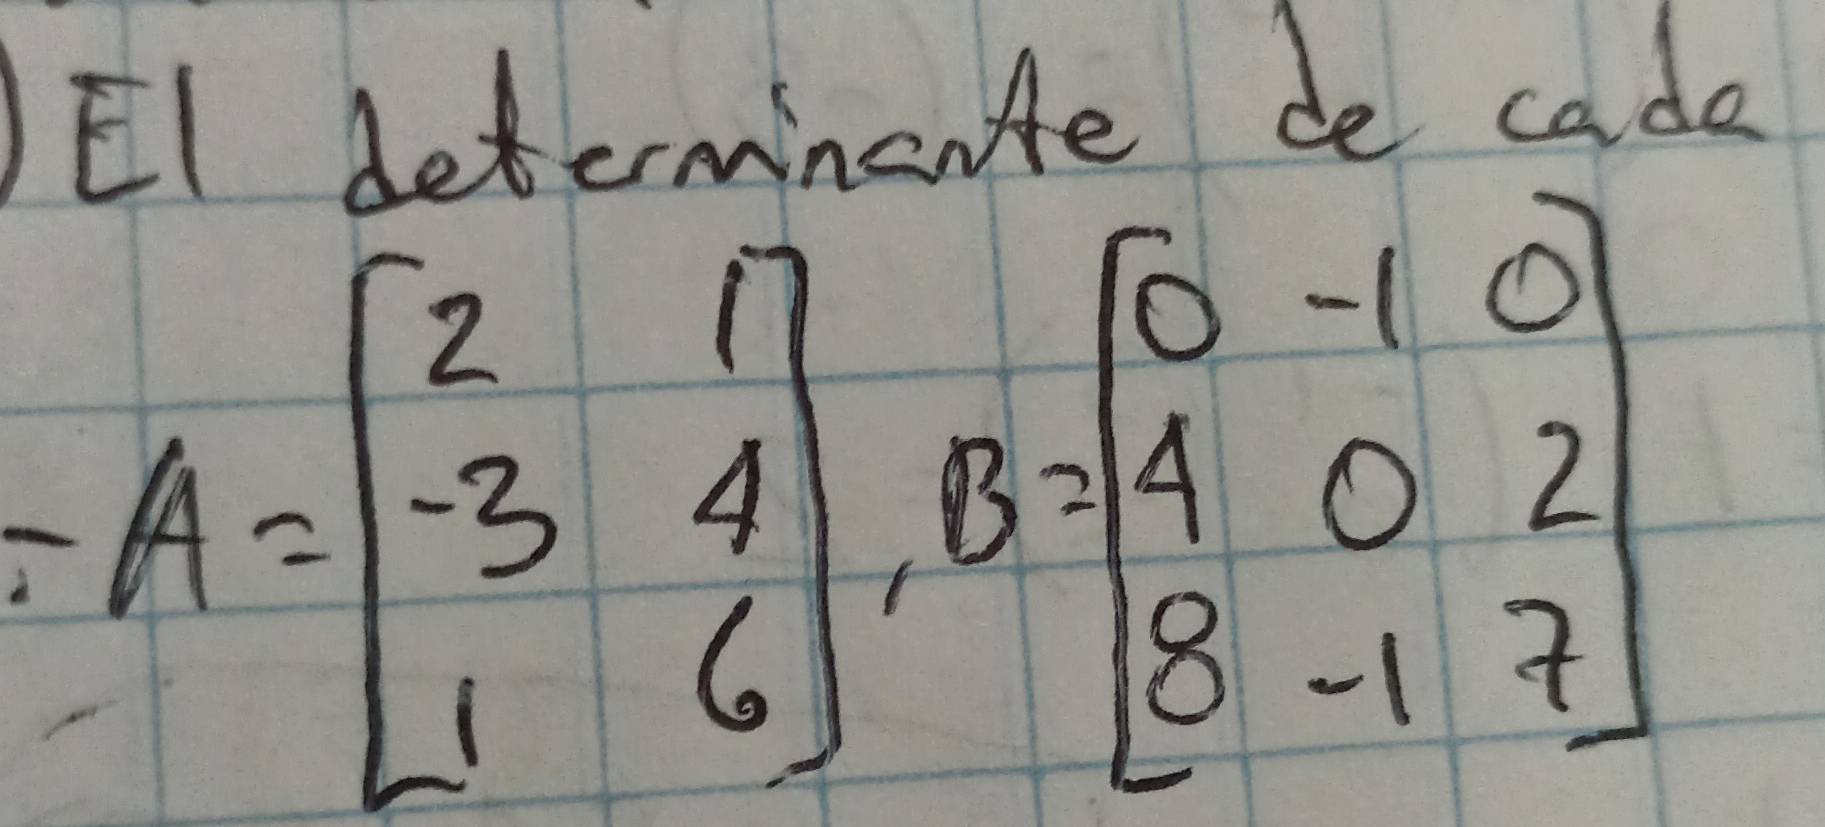 ) El determinante de cada
:- A = [2 1; -3 4; 1 6], B = [0 -1 0; 4 0 2; 8 -1 7]